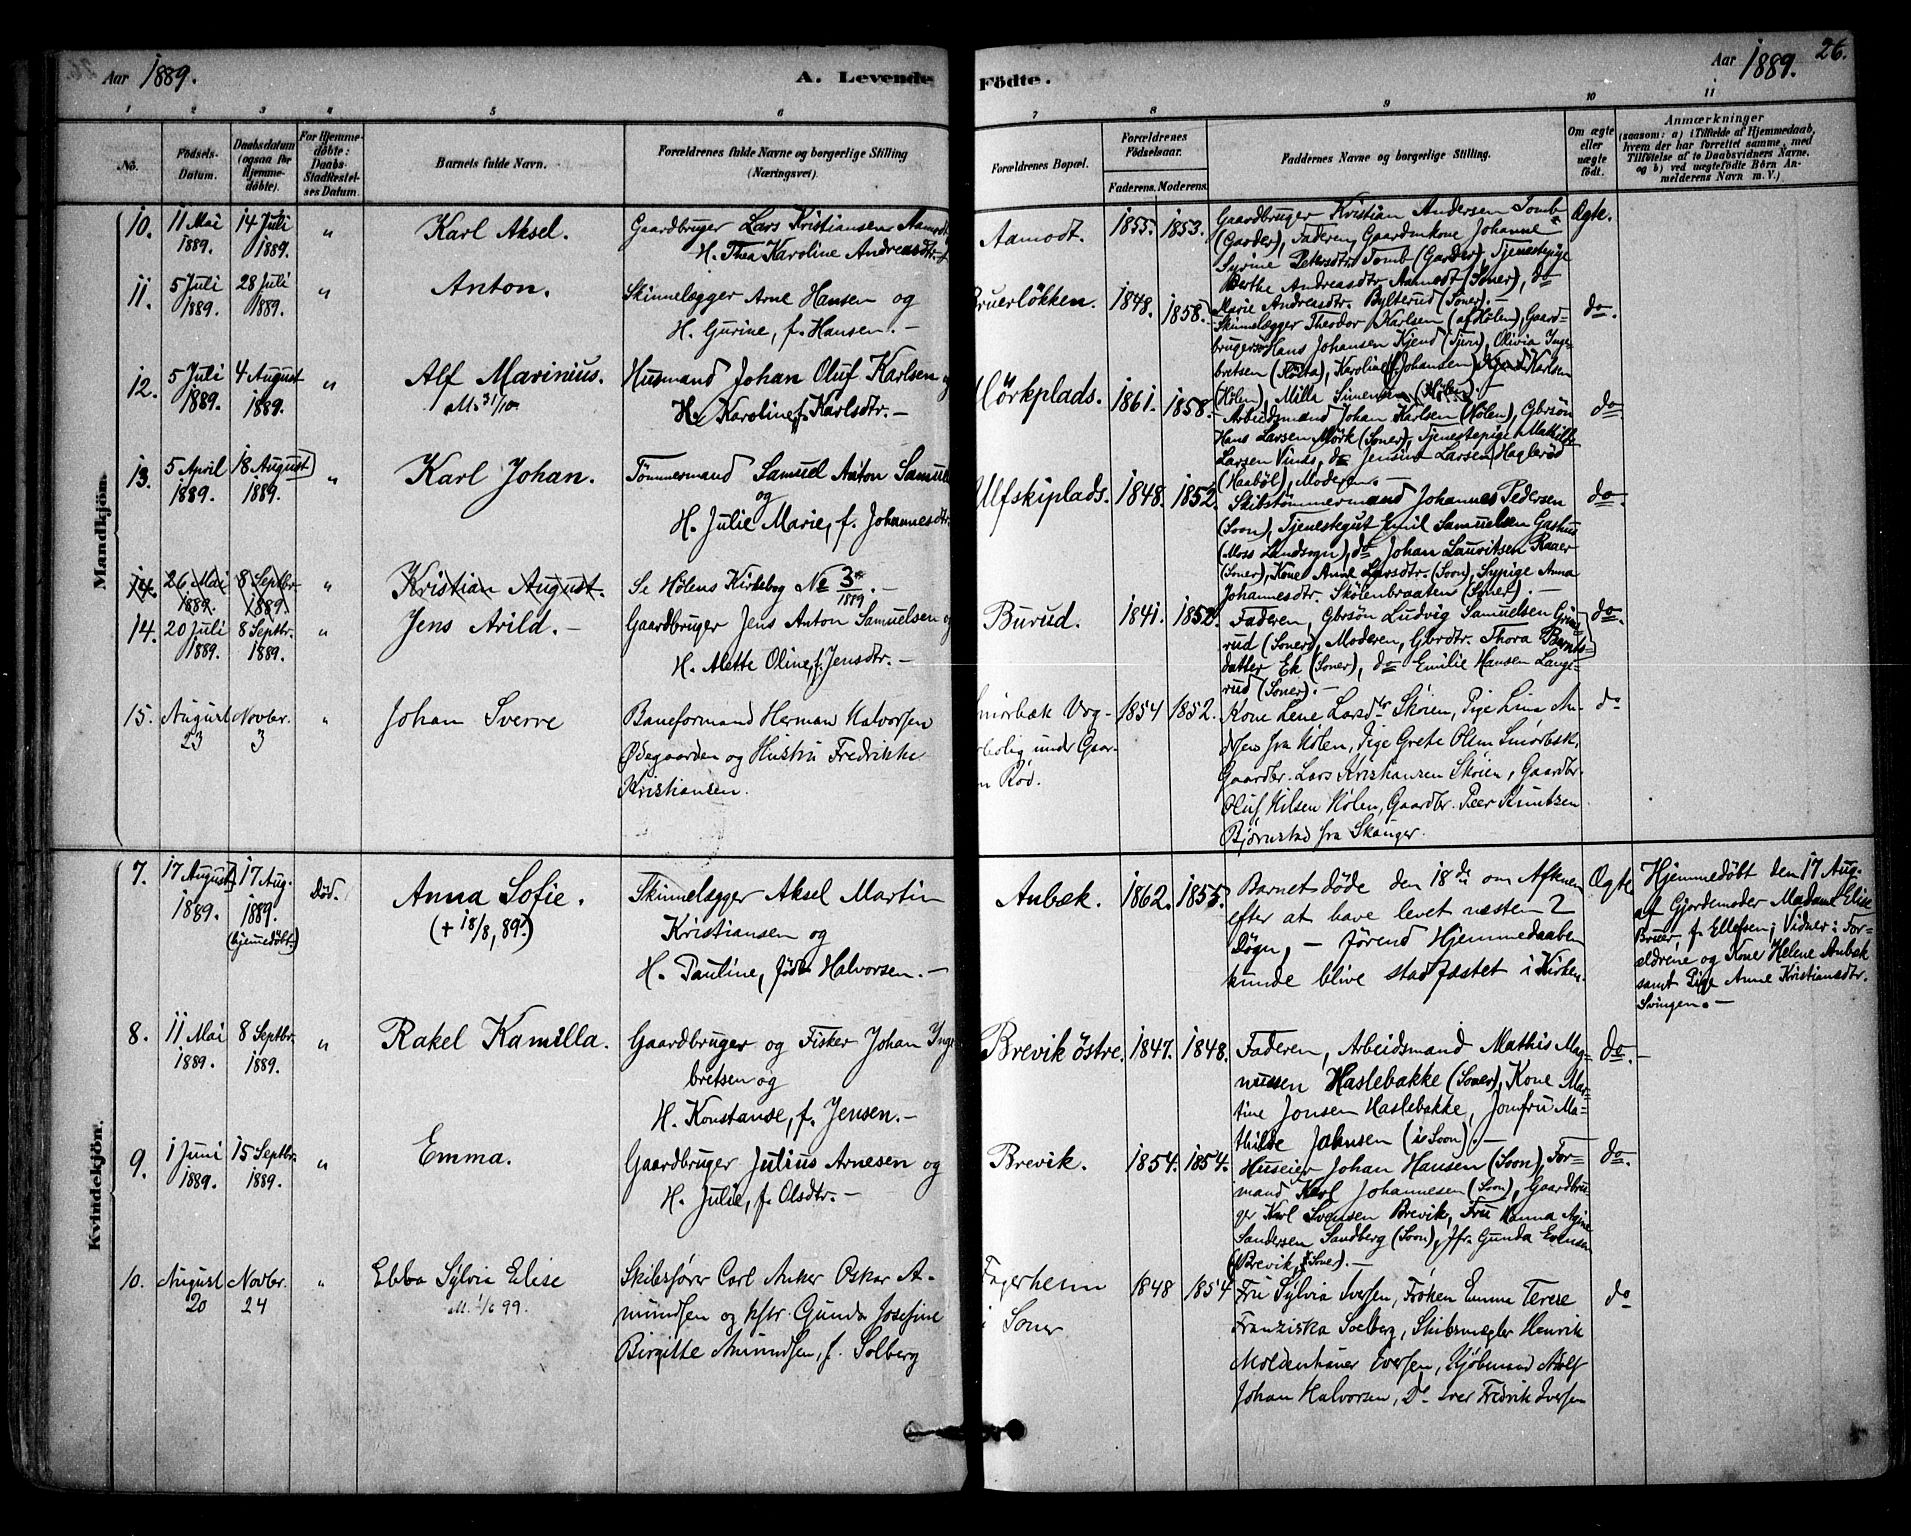 Aar 1889.
A. Levende Födte.
Aar 1889. 26.
1 2 3 4 5 6 7 8 9 10 11
No.
Födsels-
Datum.
Daabsdatum
(ogsaa for
Hjemme-
døbte).
For Hjemme-
døbte:
Daabs-
Stadfæstel-
ses Datum.
Barnets fulde Navn.
Forældrenes fulde Navne og borgerlige Stilling
(Næringsvei).
Forældrenes Bopæl.
Forældrenes
Födselsaar.
Faderens. Moderens.
Faddernes Navne og borgerlige Stilling.
Om ægte
eller
uægte
født.
Anmærkninger
(saasom: a) i Tilfælde af Hjemmedaab,
hvem der har forrettet samme, med
Tilføielse af to Daabsvidners Navne,
og b) ved uægtefödte Börn An-
melderens Navn m. V.)
Mandkjön.
10. 11 Mai 1889. 14 Juli 1889. " Karl Aksel.
Gaardbruger Lars Kristiansen Aamodt
H. Thea Karoline Andreasdtr.
Aamodt. 1855. 1853.
Gaardbruger Kristian Andersen Tomb
(Garder), Faderen, Gaardmkone Johanne
Syrine Petersdtr. Tomb (Garder), Tjenestepige
Berthe Andreasdtr. Aamodt (Soner), do
Marie Andreasdtr. Bylterud (Soner). -
Ægte.
11. 5 Juli 1889. 28 Juli 1889. " Anton.
Skinnelægger Arne Hansen og
H. Gurine, f. Hansen. -
Bruerløkken. 1848. 1858.
Skinnelægger Theodor Karlsen (af Hölen), Gaard-
bruger Hans Johansen Kjend (Tjørn), Olivia Inge-
bretsen (Hølta), Karoline f. Johansen Karlsen
(Hølen), Milla Simensen (Hølen).
do.
12. 5 Juli 1889. 4 August 1889. " Alf Marinius.
M. 31/10
Husmand Johan Oluf Karlsen og
H. Karoline, f. Karlsdtr. -
Mörkplads. 1861. 1858.
Arbeidsmand Johan Karlsen (Hölen), Gbrsön
Hans Larsen Mörk (Soner), Tjenestepige Mathilde
Larsen Vinds, do Jensine Larsen Haglerød
(Haabøl), Moderen. -
do
13. 5 April 1889. 18 August 1889. " Karl Johan.
Tömmermand Samuel Anton Samuel
og
H. Julie Marie, f. Johannesdtr.
Ulfskiplads. 1848. 1852.
Skibstömmermand Johannes Pedersen
(Soon), Tjenestegut Emil Samuelsen Gashus
(Moss Landsogn), do Johan Lauritsen Raaer
(Soner), Kone Anne Larsdtr. (Soon), Sypige Anna
Johannesdtr. Skölenbraaten (Soner). -
do
14. 26 Mai 1889. 8 Septbr. 1889. " Kristian August.
Se Hölens Kirkebog No 3 1889. -
14. 20 Juli 1889. 8 Septbr. 1889. " Jens Arild. -
Gaardbruger Jens Anton Samuelsen og
H. Mette Oline, f. Jensdtr. -
Burud. 1841. 1852.
Faderen, Gbrsön Ludvig Samuelsen Grim-
rud (Soner), Moderen, Gbrdtr. Thora Bernts-
datter Ek (Soner), do Emilie Hansen Lange-
rud (Soner). -
do.
15. August 23 Novbr. 3 " Johan Sverre
Baneformand Herman Halvorsen
Ødegaarden og Hustru Fredrikke
Kristiansen.
Smörbæk Vog-
terbolig under Gaar-
den Rød.
1854 1852.
Kone Lene Larsdtr Sköien, Pige Lina An-
dersen fra Hölen, Pige Grete Olsen Smörbæk,
Gaardbr. Lars Kristiansen Skøien, Gaardbr.
Oluf Nilsen Hölen, Gaardbr. Peer Knutsen
Björnstad fra Skanger.
do
Kvindekjön.
7. 17 August 1889. 17 Aug. 1889. (hjemmedöbt.) Död.
Anna Sofie.
(+ 18/8, 89.)
Skinnelægger Aksel Martin
Kristiansen og
H. Pauline, født Halvorsen. -
Aubæk. 1862. 1855.
Barnet døde den 18de om Aftenen
efter at have levet næsten 2
Dögn, - förend Hjemmedaaben
kunde blive stadfæstet i Kirken.
Ægte
Hjemmedöbt den 17 Aug.
af Gjordemoder Madame Elise
Bruer, f. Ellefsen; Vidner: For-
ældrene og Kone Helene Aubæk
samt Pige Anne Kristiansdtr.
Svingen. -
8. 11 Mai 1889. 8 Septbr. 1889. " Rakel Kamilla.
Gaardbruger og Fisker Johan Inge-
bretsen og
H. Konstanse, f. Jensen. -
Brevik østre. 1847. 1848.
Faderen, Arbeidsmand Mathis Mag-
nussen Haslebakke (Soner), Kone Mar-
tine Jonsen Haslebakke, Jomfru Ma-
thilde Johnsen (i Soon). -
do. -
9. 1 Juni 1889. 15 Septbr. 1889. " Emma.
Gaardbruger Julius Arnesen og
H. Julie, f. Olsdtr. -
Brevik. 1854. 1854.
Huseier Johan Hansen (Soon), For-
mand Karl Johannesen (Soon), Gaardbru-
ger Karl Svensen Brevik, Fru Hanna Agine
Sandersen Sandberg (Soon), Jfr. Gunda Evensen
(Brevik, Soner). -
do.
10. August 20 Novbr. 24 " Ebba Sylvia Elise
M. 1/6 99.
Skibsfører Carl Anker Oskar A-
mundsen og Hstr. Gunda Josefine
Birgitte Amundsen, f. Solberg
Fagerheim
i Soner
1848 1854
Fru Sylvia Iversen, Fröken Emma Terese
Franziska Soelberg, Skibsmægler Henrik
Moldenhauer Iversen, Kjöbmand Adolf
Johan Halvorsen, Do Iver Fredrik Iversen
do